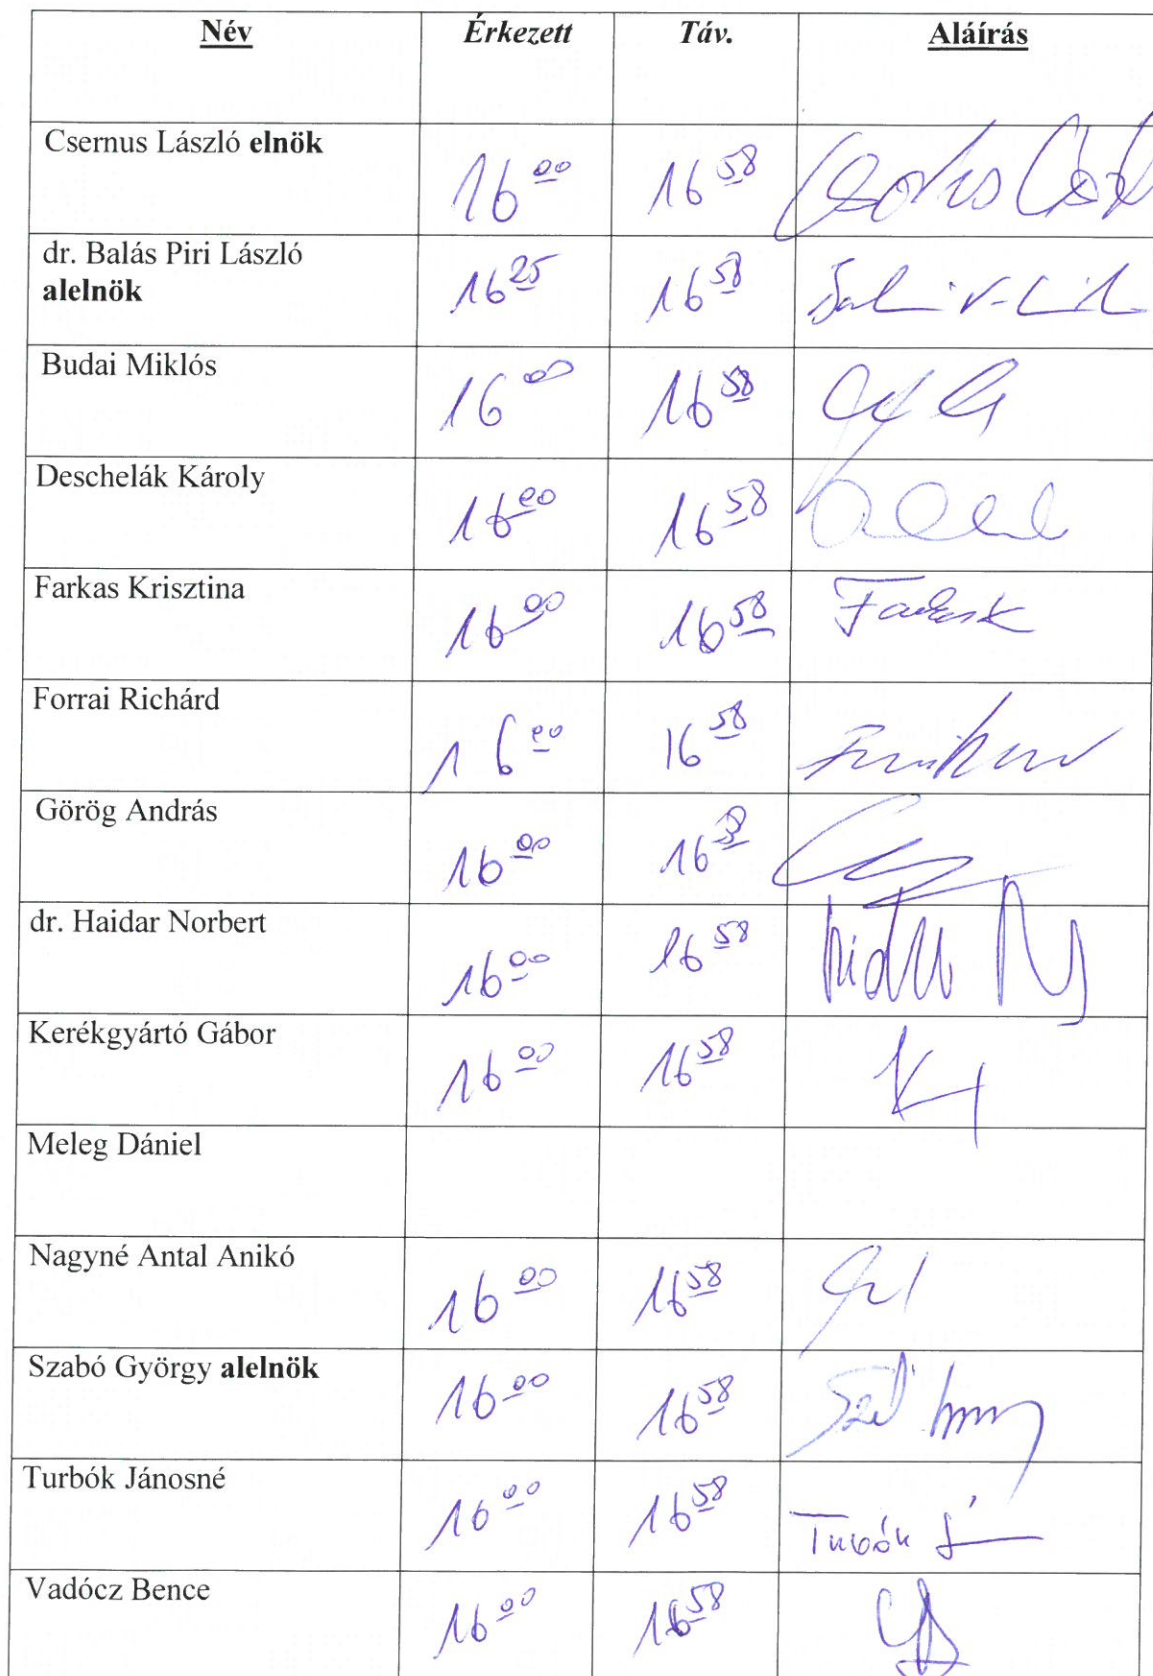 Név Érkezett Táv. Aláírás
Csernus László elnök 16 00 16 58
dr. Balás Piri László
alelnök 16 25 16 58
Budai Miklós 16 00 16 58
Deschelák Károly 16 00 16 58
Farkas Krisztina 16 00 16 58
Forrai Richárd 16 00 16 58
Görög András 16 00 16 58
dr. Haidar Norbert 16 00 16 58
Kerékgyártó Gábor 16 00 16 58
Meleg Dániel
Nagyné Antal Anikó 16 00 16 58
Szabó György alelnök 16 00 16 58
Turbók Jánosné 16 00 16 58
Vadócz Bence 16 00 16 58